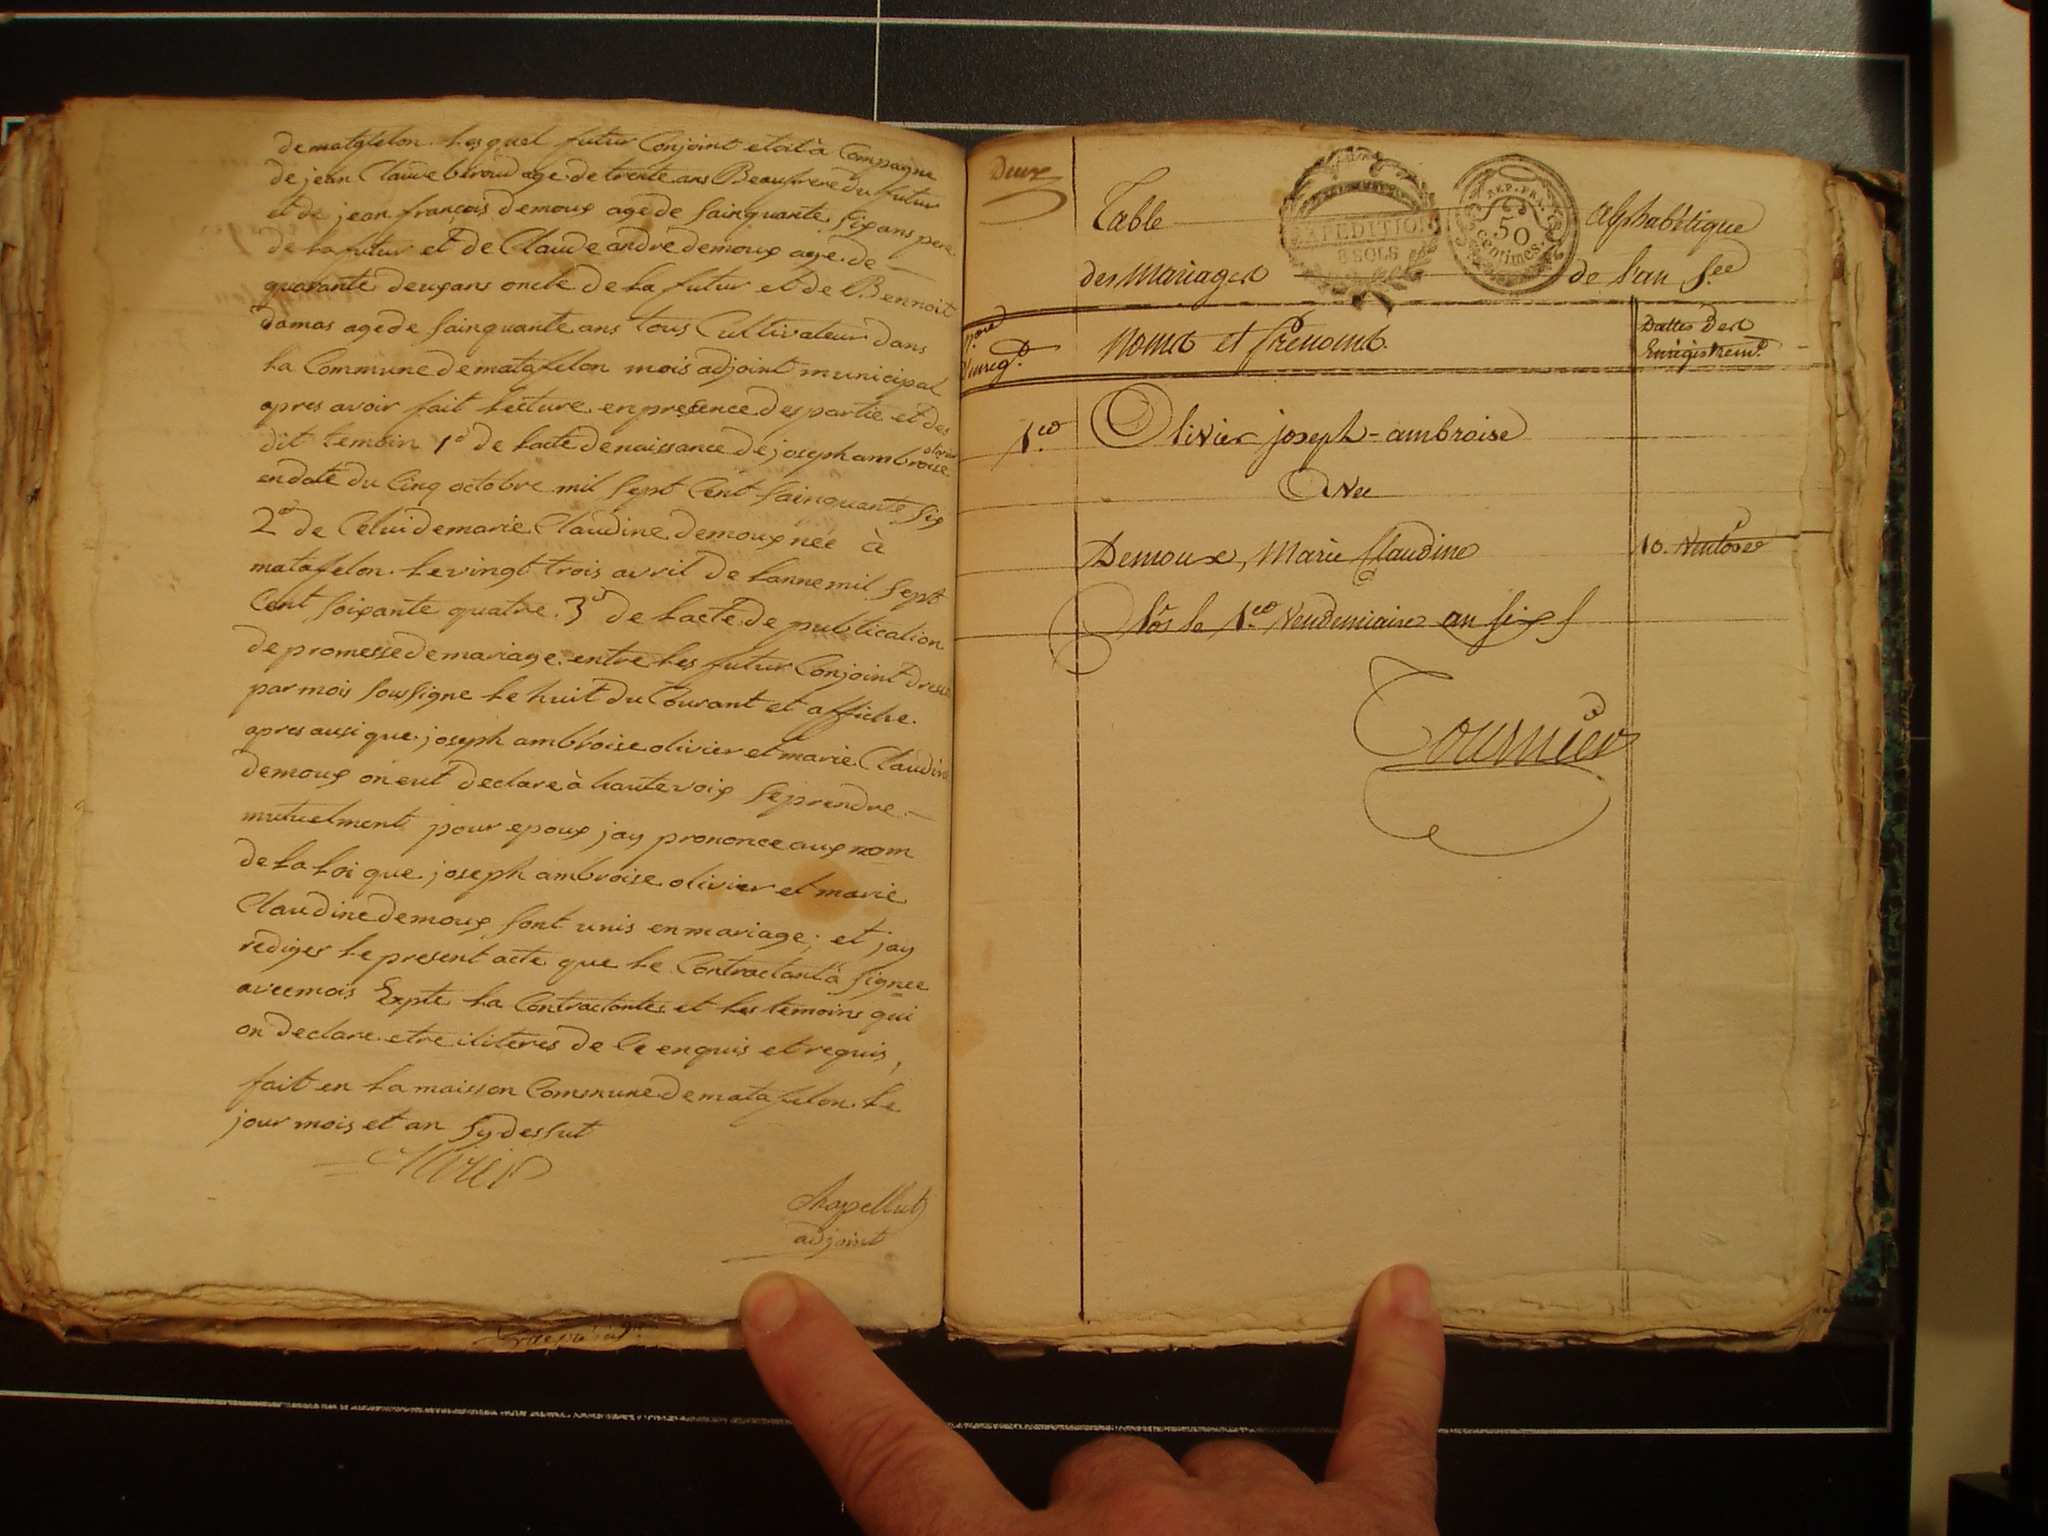 de matafelon. Lesquel futur Conjoint etoit à Compagne
de jean Claude beroud age de trente ans Beaufrere du futur
et de jean françois demoux age de sainquante six ans pere
de la futur et de Claude andré demoux age de
quarante deux ans oncle de la futur et de Bennoit
damas age de sainquante ans tous Cultivateur dans
la Commune de matafelon mois adjoint municipal
apres avoir fait lecture en presence des partie et des
dit temoin 1o de lacte de naissance de joseph ambroise olivier
en date du Cinq octobre mil sept Cent sainquante six
2o de Celui de marie Claudine demoux née à
matafelon. le vingt trois avril de lanne mil sept
Cent soixante quatre. 3o de lacte de publication
de promesse de mariage. entre les futur Conjoint
par mois sousigne le huit du Courant et affiche.
apres ausi que joseph ambroise olivier et marie Claudine
demoux on eut declare à haute voix se prendre
mutuelment pour epoux jay prononce aux nom
de la loi que joseph ambroise olivier et marie
Claudine demoux sont unis en mariage; et jay
rediger le present acte que le Contractant à signee
avec mois Expte la Contractantes et les temoins qui
on declare etre iliteres de ce enquis et requis,
fait en la maison Commune de matafelon. le
jour mois et an sy dessut
Chapellut
adjoint
Deux
Table Alphabétique
EXPEDITION
8 SOLS
REP. FRA.
50
centimes.
des Mariages de l'an 5.ee
N.os d'enreg.t
Noms et Prenoms.
Dattes des
Enregistrem.t
1.er
Olivier joseph-ambroise
Avec
Demoux, Marie Claudine
10. Ventose
Clos le 1.er Vendemiaire an six
Tournier